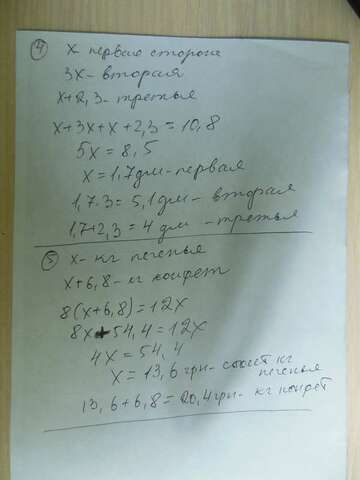 4 х первая сторона
3х - вторая
х+2,3 - третья
х+3х+х+2,3=10,8
5х=8,5
х=1,7дм - первая
1,7·3=5,1дм - вторая
1,7+2,3=4 дм - третья
5 х - кг печенья
х+6,8 - кг конфет
8(х+6,8)=12х
8х+54,4=12х
4х=54,4
х=13,6 грн - стоит кг
печенья
13,6+6,8=20,4грн - кг конфет